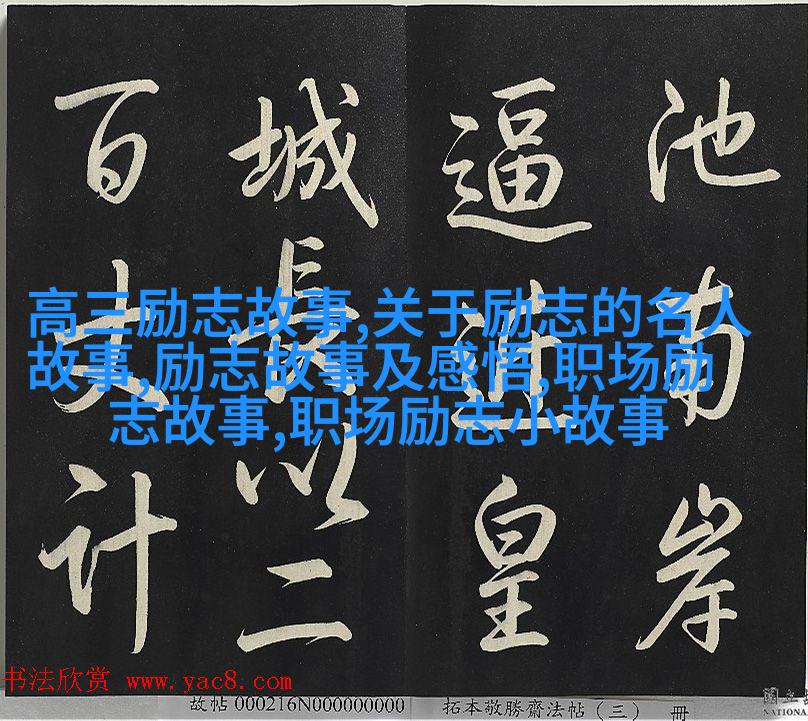 池南岸
逼進皇
城長以二
百丈計
高三励志故事,关于励志的名人
故事,励志故事及感悟,职场励
志故事,职场励志小故事
书法欣赏 www.yac8.com
故帖 000216N000000000 拓本敬勝齋法帖（三） 冊
國立
NATIONA